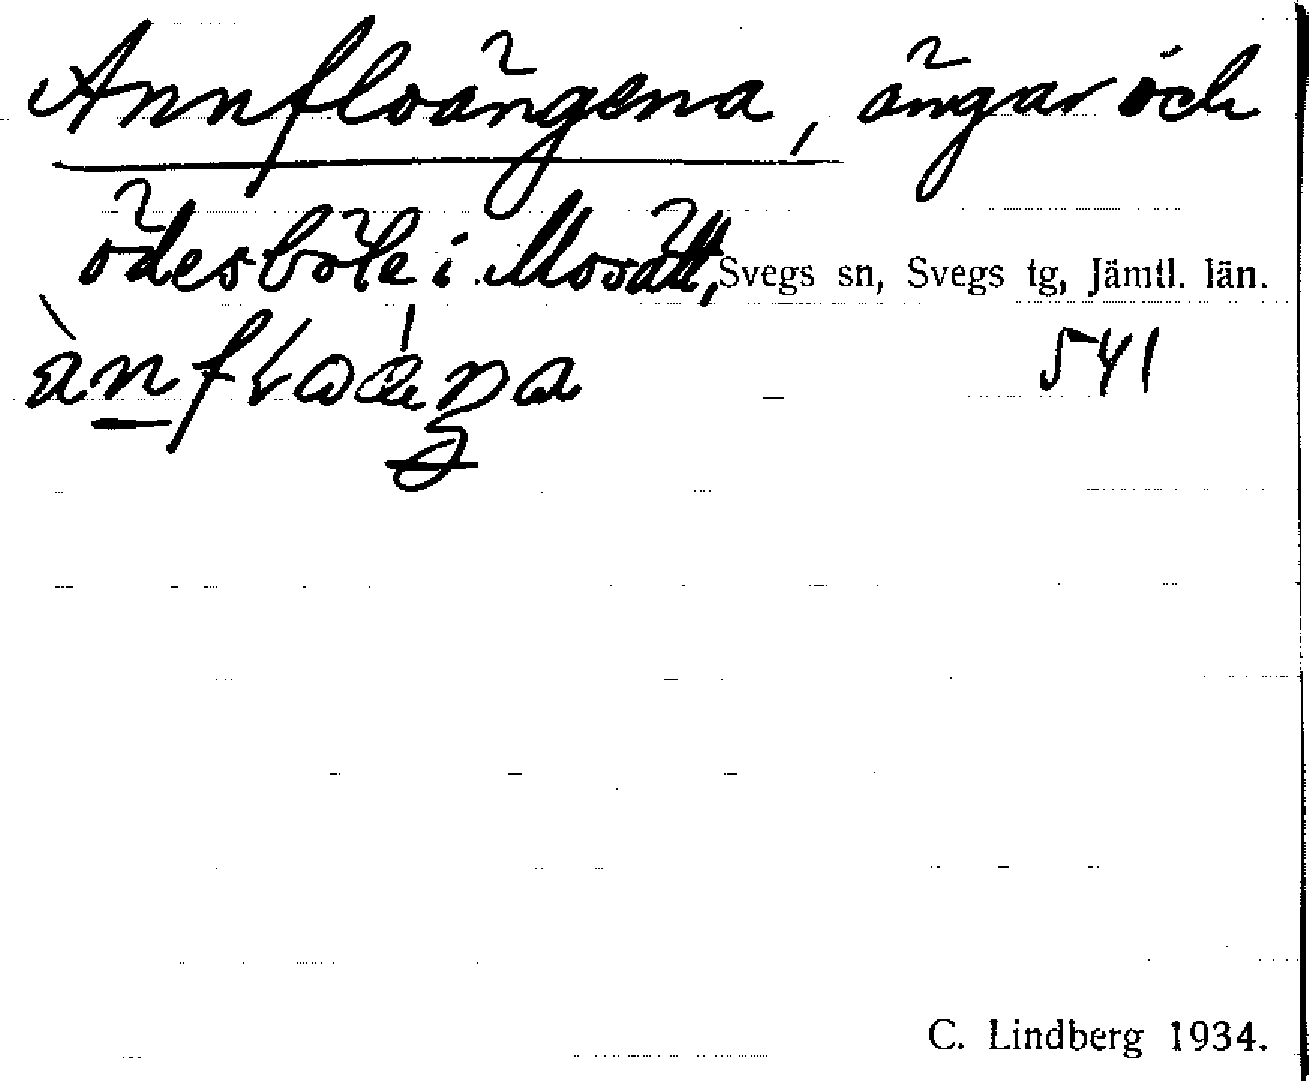 Annfloängena, ängar och
ödesböle i Mosätt, Svegs sn, Svegs tg, Jämtl. län.
541
C. Lindberg 1934.